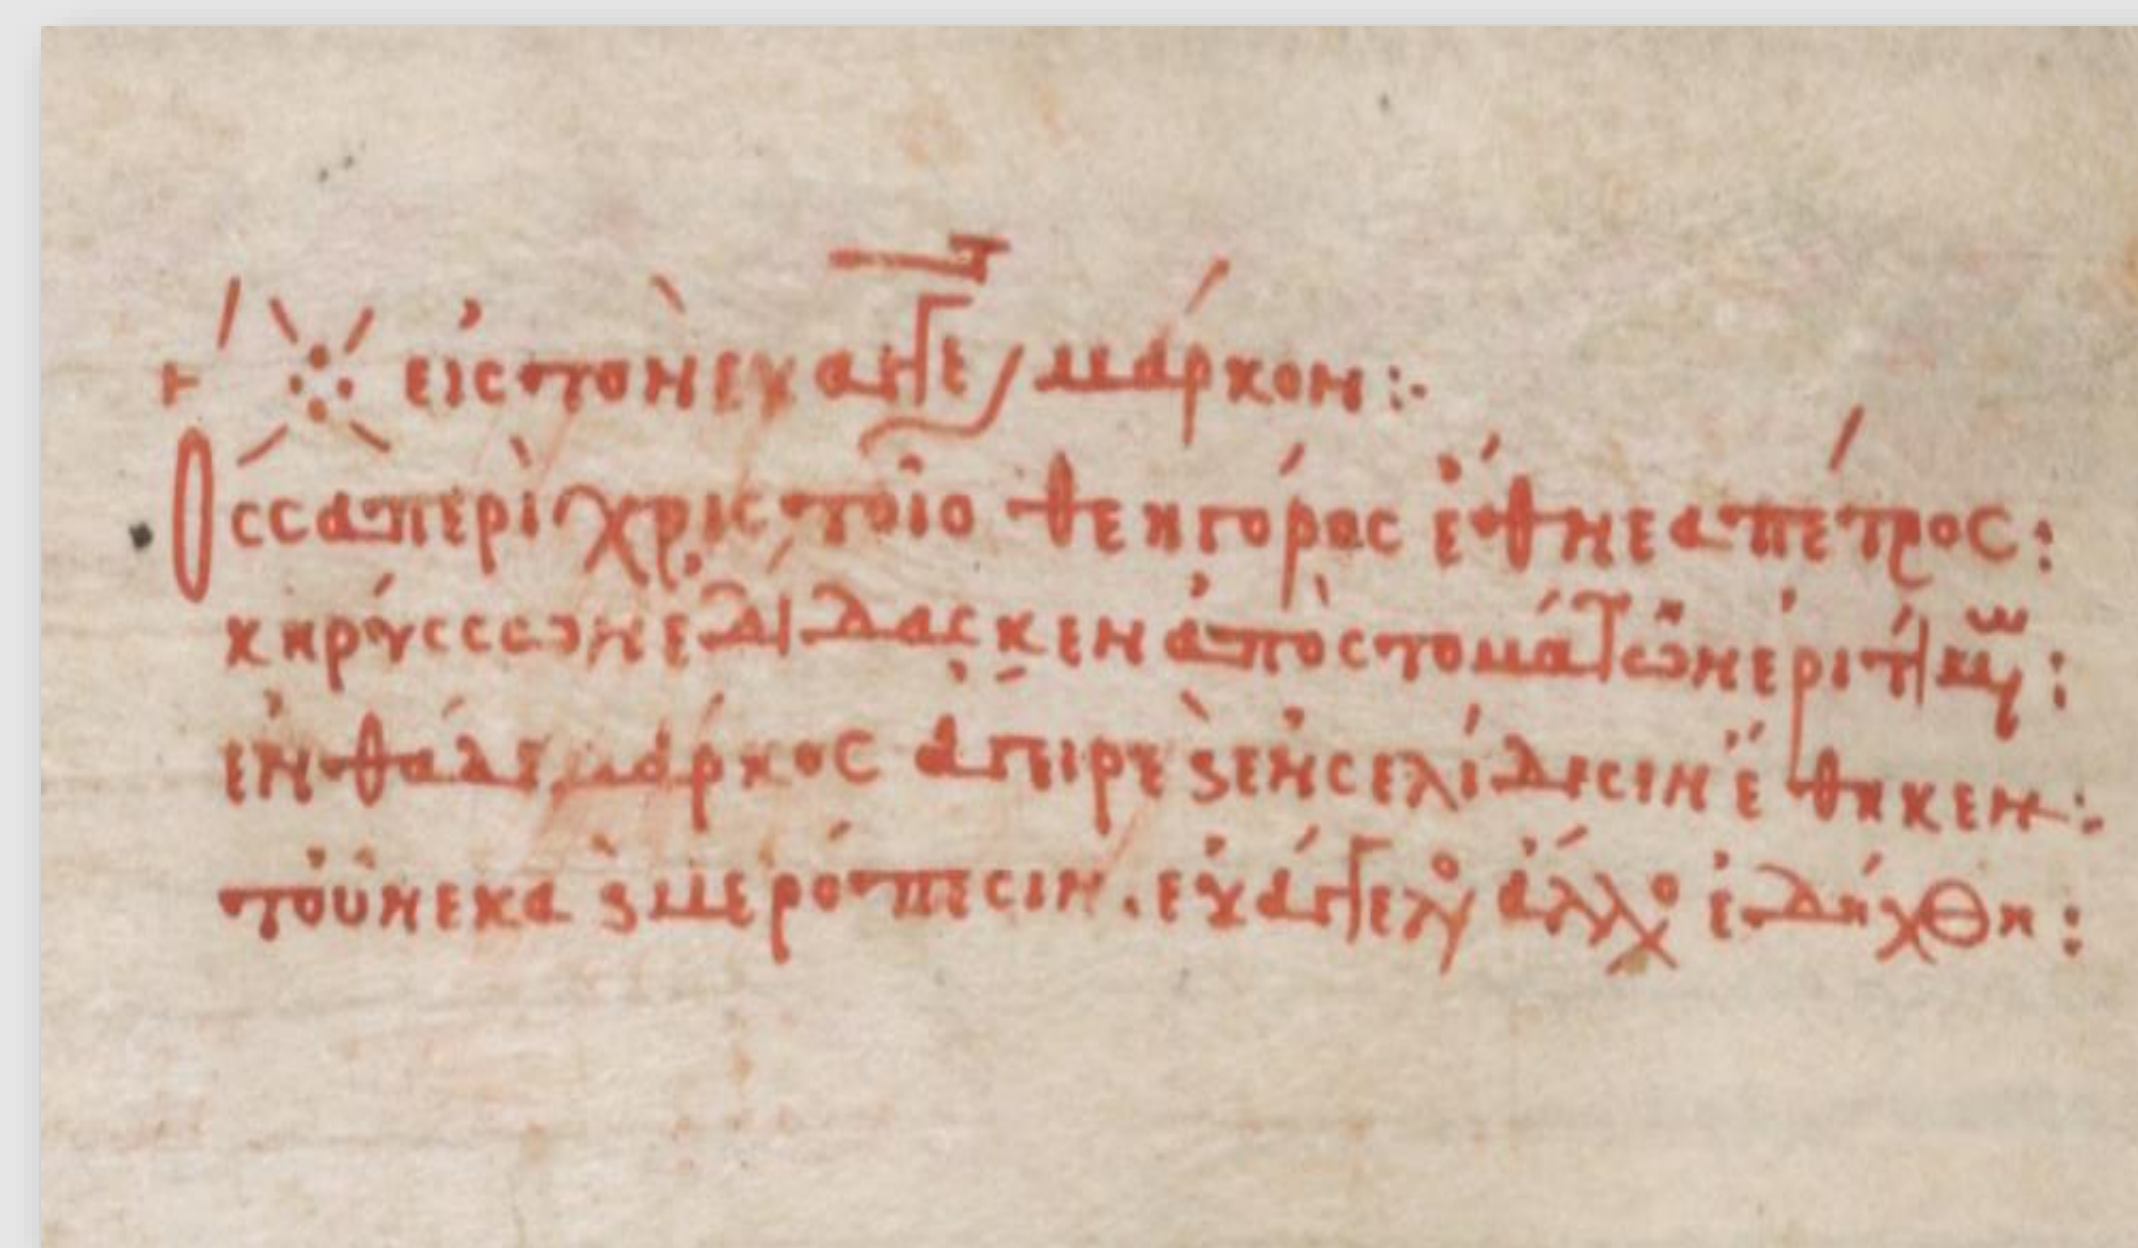 εἰς τὸν εὐαγγε μάρκον :·
Ὅσσα περὶ χριστοῖο θεηγόρος ἔθνεα πέτρος :
κηρύσσων ἐδίδασκεν ἀπὸ στομάτων ἐριτίμων :
ἐνθάδε μάρκος ἄγειρε ϛ ἐν σελίδεσιν ἔθηκεν :
τοὔνεκα ϛ μερόπεσιν . εὐάγγελος ἄλλος ἐδήχθη :